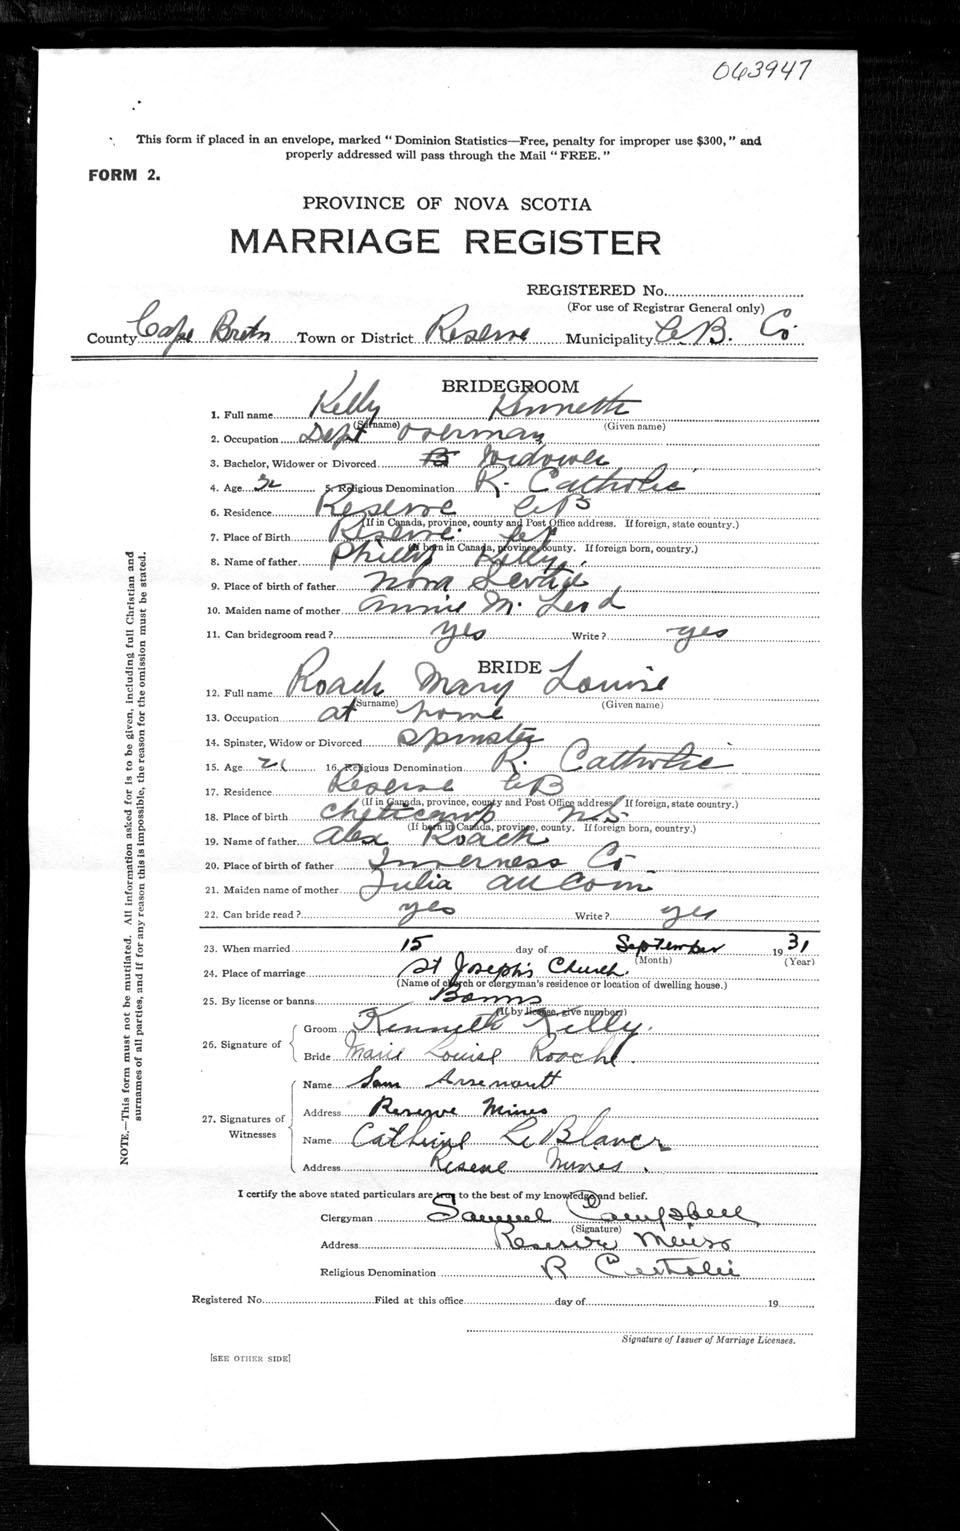 063947
This form if placed in an envelope, marked "Dominion Statistics—Free, penalty for improper use $300," and
properly addressed will pass through the Mail "FREE."
FORM 2.
PROVINCE OF NOVA SCOTIA
MARRIAGE REGISTER
REGISTERED No.
(For use of Registrar General only)
County Cape Breton Town or District Reserve Municipality C.B. Co.
BRIDEGROOM
1. Full name Kelly Kenneth
(Surname) (Given name)
2. Occupation Dept overman
3. Bachelor, Widower or Divorced B Widower
4. Age 5. Religious Denomination R. Catholic
6. Residence Reserve CB
(If in Canada, province, county and Post Office address. If foreign, state country.)
7. Place of Birth Reserve
(If born in Canada, province, county. If foreign born, country.)
8. Name of father Philip Kelly
9. Place of birth of father Nova Scotia
10. Maiden name of mother Annie McLeod
11. Can bridegroom read? yes Write? yes
BRIDE
12. Full name Roach Mary Louise
(Surname) (Given name)
13. Occupation at home
14. Spinster, Widow or Divorced Spinster
15. Age 21 16. Religious Denomination R. Catholic
17. Residence Reserve CB
(If in Canada, province, county and Post Office address. If foreign, state country.)
18. Place of birth Cheticamp N.S.
(If born in Canada, province, county. If foreign born, country.)
19. Name of father Alex Roach
20. Place of birth of father Inverness Co
21. Maiden name of mother Julia AuCoin
22. Can bride read? yes Write? yes
23. When married 15 day of September 1931
(Month) (Year)
24. Place of marriage St Joseph's Church.
(Name of church or clergyman's residence or location of dwelling house.)
25. By license or banns Banns
(If by license, give number)
26. Signature of
Groom Kenneth Kelly.
Bride Marie Louise Roach
27. Signatures of Witnesses
Name Sam Arsenault
Address Reserve Mines
Name Catherine LeBlanc
Address Reserve Mines.
I certify the above stated particulars are true to the best of my knowledge and belief.
Clergyman Samuel Campbell
(Signature)
Address Reserve Mines
Religious Denomination R Catholic
Registered No. Filed at this office day of 19
Signature of Issuer of Marriage Licenses.
[SEE OTHER SIDE]
NOTE.—This form must not be mutilated. All information asked for is to be given, including full Christian and
surnames of all parties, and if for any reason this is impossible, the reason for the omission must be stated.